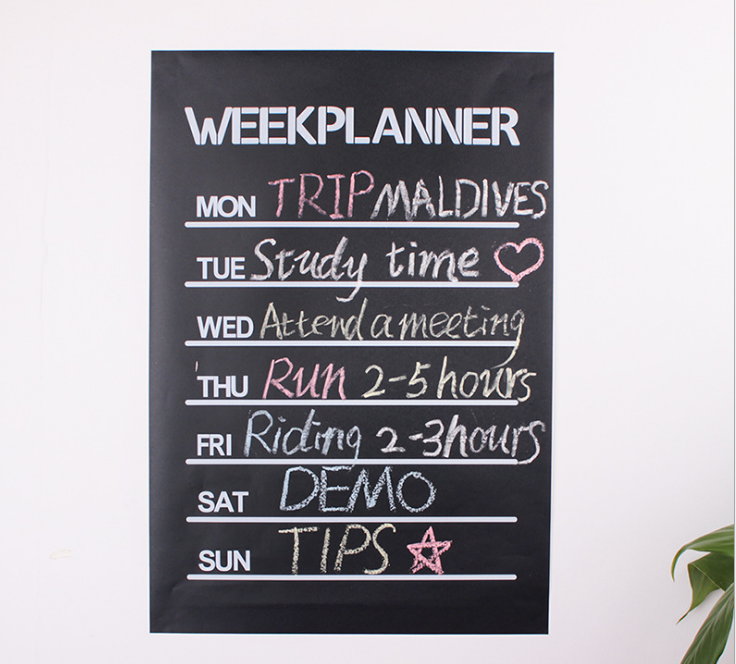 WEEKPLANNER
MON TRIP MALDIVES
TUE Study time
WED Attend a meeting
THU Run 2-5 hours
FRI Riding 2-3 hours
SAT DEMO
SUN TIPS